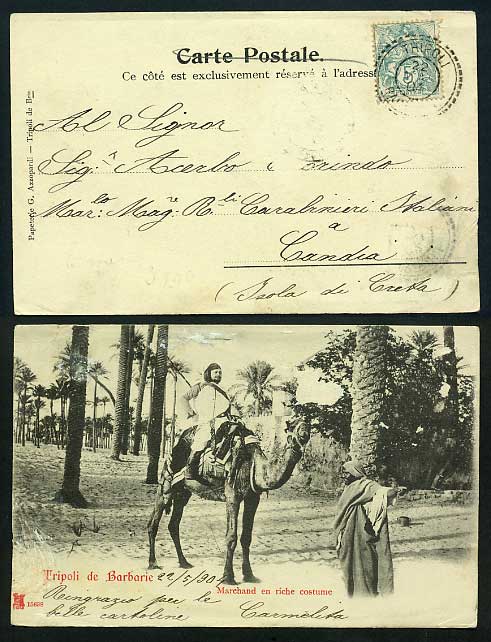 Carte Postale.
Ce côté est exclusivement réservé à l'adresse
TRIPOLI
Papeterie G. Azzopardi — Tripoli de Bie
Al Signor
Sig:ª Acerbo
Mar:lo Mag:re R.li Carabinieri Italiani
a
Candia
(Isola di Creta)
Tripoli de Barbarie 22/5/904
Marchand en riche costume
15638
Ringrazio per le
belle cartoline Carmelita